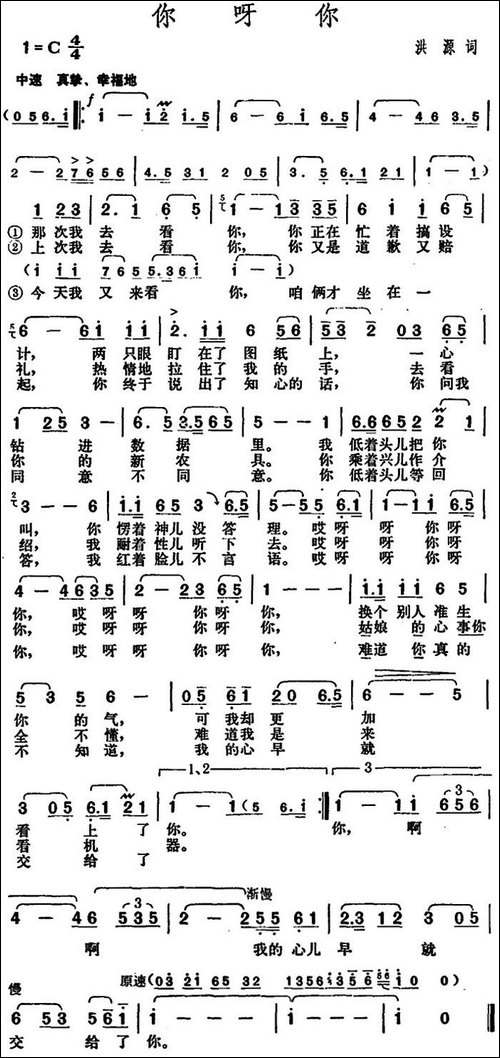 你 呀 你
1=C 4/4
洪 源 词
中速 真挚、幸福地
(056.i ‖: i — i 2 i.5 | 6 — 6 i.5 | 4 — 4 6 3.5 |
2 — 2 7 6 5 6 | 4.5 3 1 2 0 5 | 3.5 6.1 2 1 | 1 — 1) |
1 2 3 | 2.1 6 5 | 1 — 1 3 3 5 | 6 i i 6 5 |
①那次我 去 看 你, 你正在 忙 着 搞设
②上次我 去 看 你, 你又是 道 歉 又赔
(i i i 7655.36i i — i)
③今天我 又 来看 你, 咱俩才 坐 在 一
6 — 6 1 1 1 | 2.1 1 6 5 6 | 5 3 2 0 3 6 5 |
计, 两 只眼 盯 在了 图 纸 上, 一心
礼, 热 情地 拉 住了 我 的 手, 去看
起, 你 终于 说 出了 知心的 话, 你问我
1 2 5 3 — | 6.5 3.5 6 5 | 5 — — 1 | 6.6 6 5 2 2 1 |
钻 进 数 据 里。 我 低着头儿把 你
你 的 新 农 具。 你 乘着兴儿作 介
同 意 不 同 意。 你 低着头儿等 回
3 — — 6 | 1.1 6 5 3 6.5 | 5 — 5 5 6.1 | 6 — 6 0 6.5 |
叫, 你 愣着 神儿 没 答 理。 哎呀 呀 你呀
绍, 我 耐着 性儿 听 下 去。 哎呀 呀 你呀
答, 我 红着 脸儿 不 言 语。 哎呀 呀 你呀
4 — 4 6 3 5 | 2 — 2 3 6 5 | 1 — — — | 1.1 1 1 6 5 |
你, 哎呀 呀 你呀 你, 换个 别人 准生
你, 哎呀 呀 你呀 你, 姑娘 的 心事你
你, 哎呀 呀 你呀 你, 难道 你 真的
5 3 5 6 — | 0 5 6 1 2 0 6.5 | 6 — — 5 |
你 的 气, 可 我却 更 加
全 不 懂, 难 道我 是 来
不 知 道, 我 的心 早 就
1、2
3
3 0 5 6.1 2 1 | 1 — 1 (5 6.i :‖ 1 — 1 1 6 5 6 |
看 上 了 你。 你, 啊
看 机 器。
交 给 了
渐慢
4 — 4 6 5 3 5 | 2 — 2 5 5 6 1 | 2.3 1 2 3 0 5 |
啊 我的 心儿 早 就
慢
原速 (03 21 65 32 1356 i 0 0)
6 5 3 5 6 i | i — — — | i — — — | i — i 0 ‖
交 给了 你。